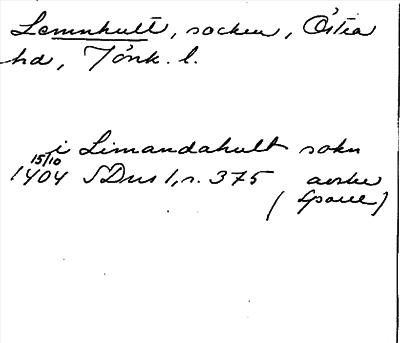 Lemnhult, socken, Östra
hd, Jönk. l.
i Limandahult sokn
15/10
1404 SDns 1, s. 375 avskr
(Gpaul)